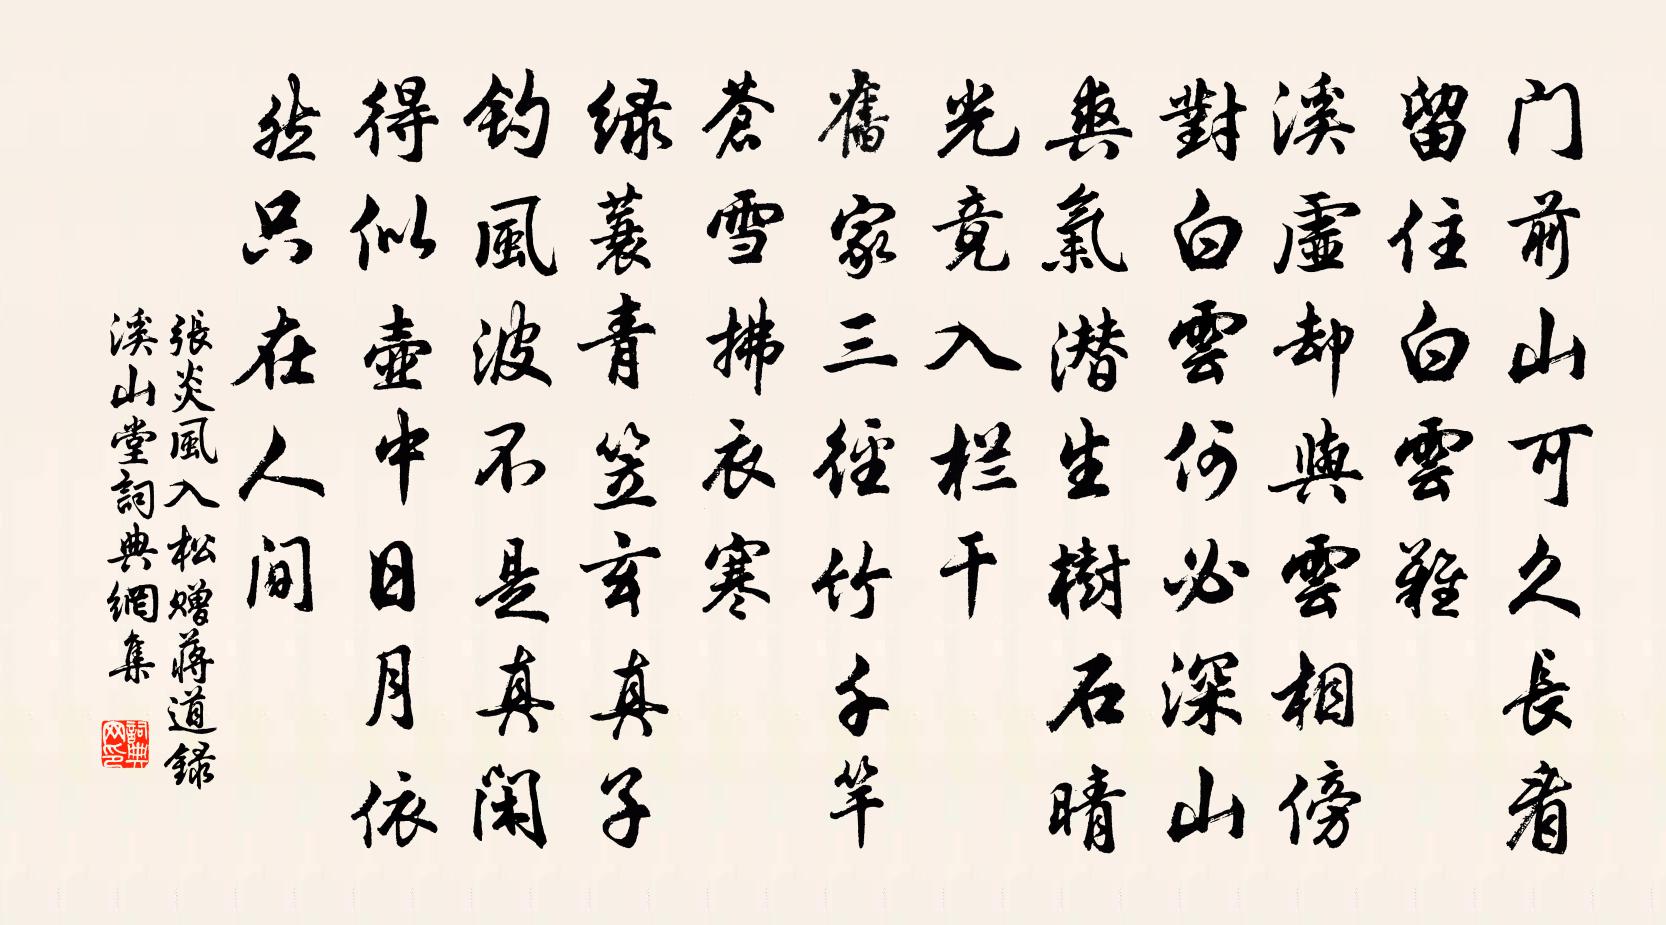 门前山可久長看
留住白雲難
溪虛却與雲相傍
對白雲何必深山
爽氣潜生樹石晴
光竟入栏干
舊家三徑竹千竿
蒼雪拂衣寒
绿蓑青笠玄真子
钓風波不是真闲
得似壺中日月依
然只在人间
張炎風入松赠蒋道録
溪山堂詞典網集
詞典网印